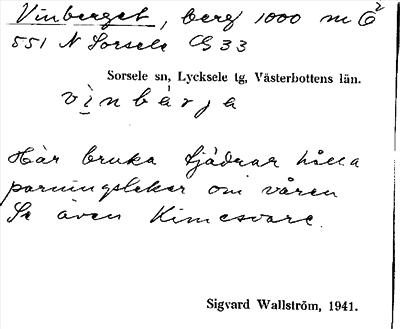 Vinberget, berg 1000 m Ö
2
551 N Sorsele CG 33
Sorsele sn, Lycksele tg, Västerbottens län.
vìnbárja
Här bruka tjädrar hålla
parningslekar om våren
Se även Kimesvare.
Sigvard Wallström, 1941.